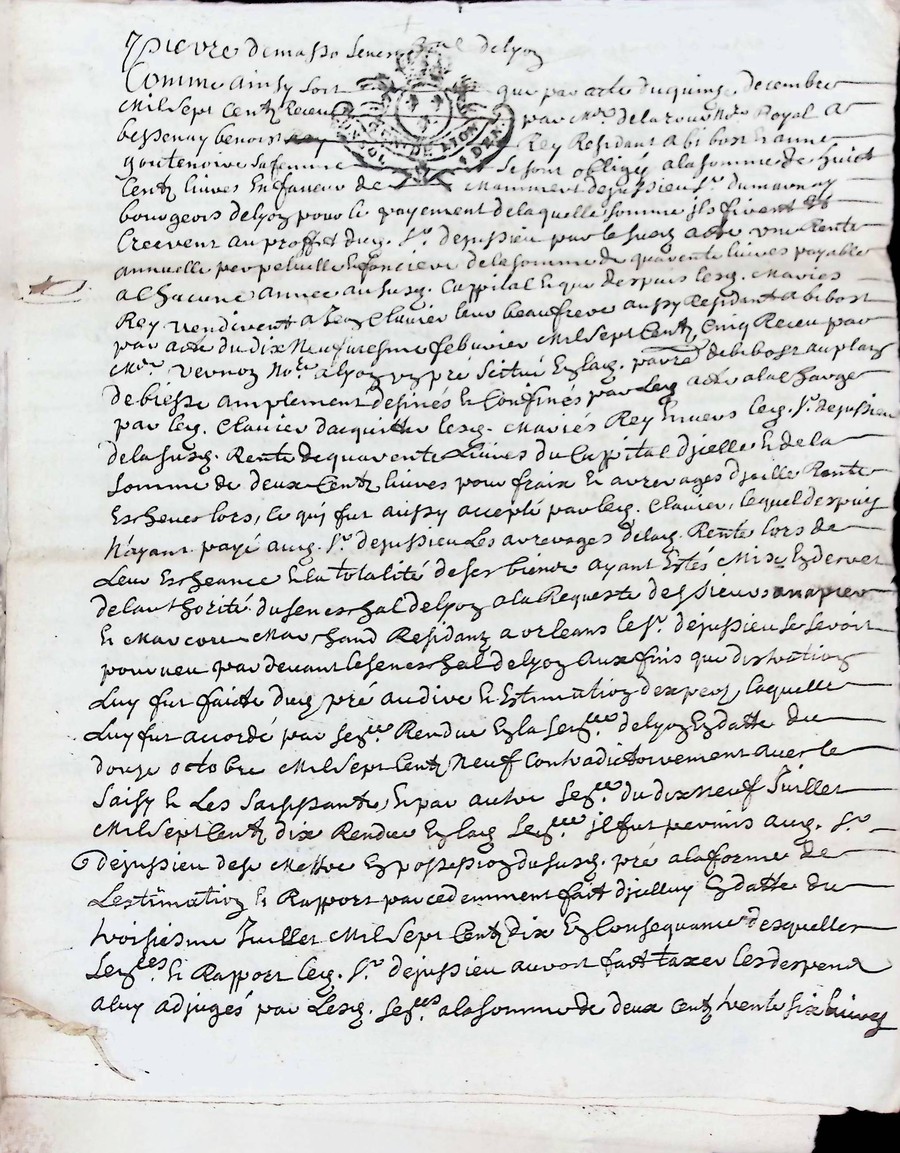 Pierre demasso Senes[ch]al delyon
Comme Ainsy soit que par acte du quinze decembre
Mil sept Centz Receu par Me. delaroue No.re Royal A
bessenay benoist Rey Residant a bibost et anne
goutenoire sa femme se sont obligés a la somme de huict
Centz livres En faveur de Mammert dejussieu Sr. dumarnay
bourgeois delyon pour le payement de laquelle somme ils firent et
Creerent au proffit dud. Sr. dejussieu par le susd. acte une Rente
annuelle perpetuelle et fonciere de la somme de quarente livres payable
a Chacune année au susd. Cappital et que despuis lesd. Mariés
Rey vendirent a Clavier leur beaufrere aussy Residant a bibost
par acte du dix Neufviesme febvrier Mil sept Centz Cinq Receu par
Me. vernon No.re a lyon un pré scitué En lad. parre. de bibost au plan
de biesse amplement desinés et Confinés par led. acte a la Charge
par led. Clavier dacquitter lesd. Mariés Rey Envers led. Sr. dejussieu
de la susd. Rente de quarente Livres du Cappital djcelle et de la
somme de deux Centz livres pour fraix et arrerages djcelle Rente
Escheues lors, Ce qui fut aussy accepté par led. Clavier, lequel despuis
N'ayant payé aud. Sr. dejussieu Les arrerages de lad. Rente lors de
Leur Escheance Et la totalité de ses biens ayant Estés Mis En decret
de lauthorité du seneschal delyon a la Requeste des sieurs
Et Marcou Marchand Residantz a orleans le Sr. dejussieu se seroit
pourveu par devant le seneschal delyon aux fins que distraction
Luy fut faicte dud. pré au dire Et Estimation dexpertz laquelle
Luy fut accordé par sen.ce Rendue En la sen.cée delyon En datte du
douze octobre Mil sept Centz Neuf Contradictoirement avec le
saisy Et Les saisissants, Et par autre sen.ce du dix neuf Juillet
Mil sept Centz dix Rendue En lad. Sen.cée il fut permis aud. Sr.
dejussieu de se Mettre En possession du susd. pré a la forme de
Lestimation Et Rapport precedemment fait djcelluy En datte du
troisiesme Juillet Mil sept Centz dix En Consequance desquelles
Sen.ces Et Rapport led. Sr. dejussieu auroit fait taxer les despens
a luy adjugés par Lesd. sen.ces a la somme de deux Centz trente six livres